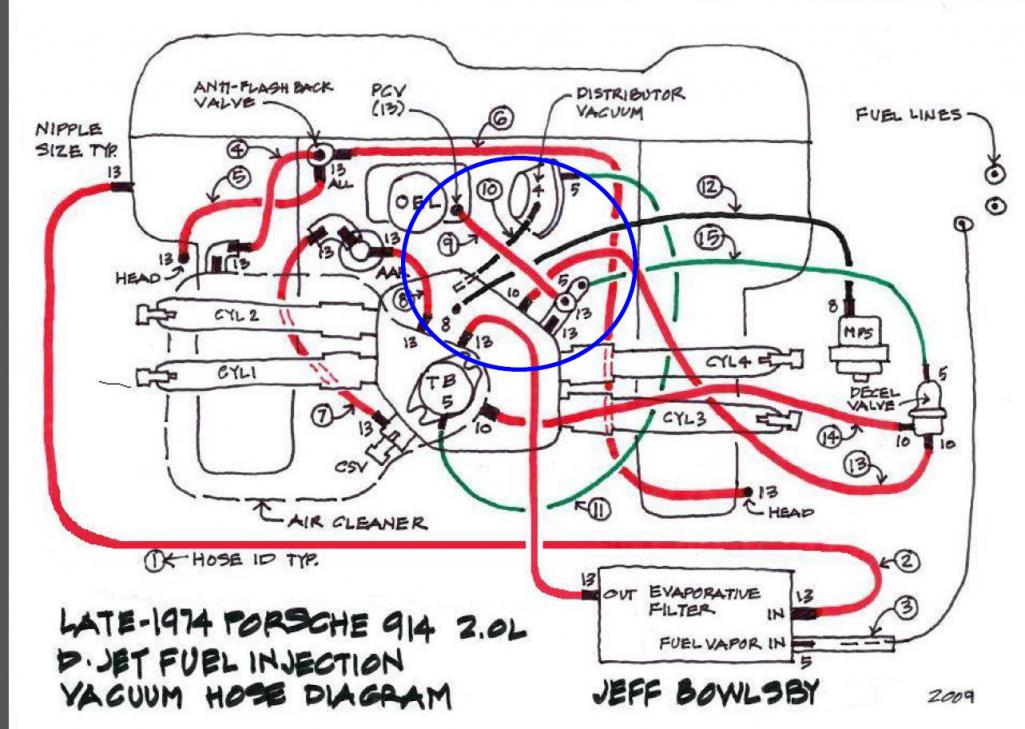 ANTI-FLASHBACK
VALVE
PCV
(13)
6
DISTRIBUTOR
VACUUM
FUEL LINES
NIPPLE
SIZE TYP.
13
4
13
ALL
5
OEL
10
4
5
12
9
15
13
HEAD
13
13
13
AAR
8
10
5
13
8
13
13
8
MPS
CYL 2
CYL1
TB
5
10
CYL4
CYL3
DECEL
VALVE
5
10
10
14
7
13
CSV
13
13
HEAD
11
AIR CLEANER
1
HOSE ID TYP.
2
13
OUT
EVAPORATIVE
FILTER
IN
13
3
FUEL VAPOR IN
5
LATE-1974 PORSCHE 914 2.0L
D-JET FUEL INJECTION
VACUUM HOSE DIAGRAM
JEFF BOWLSBY
2009